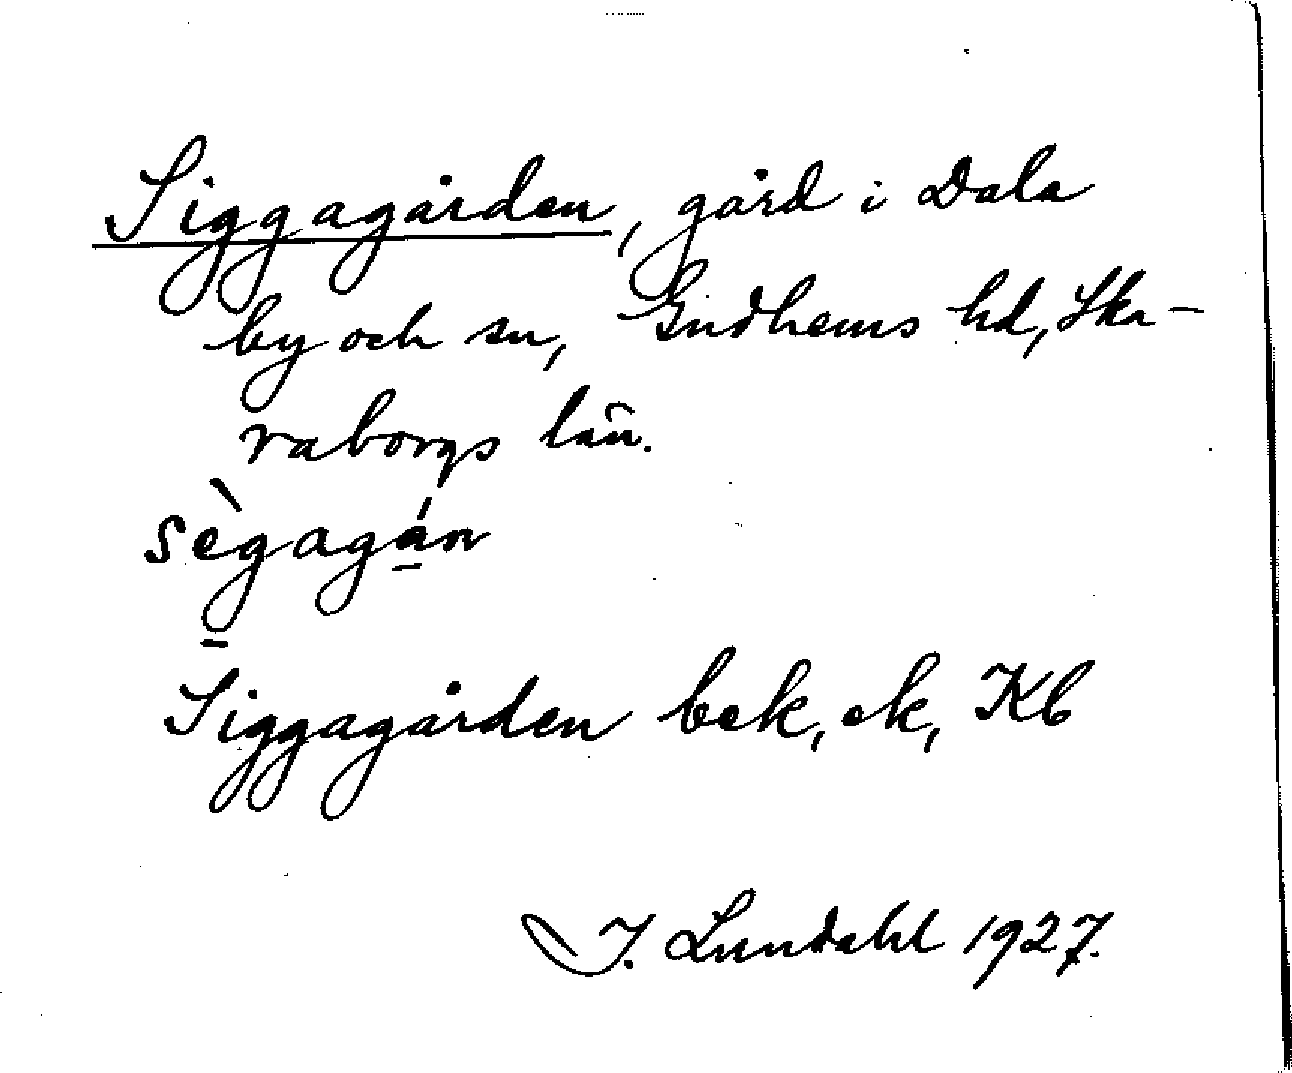 Siggagården, gård i Dala
by och sn, Gudhems hd, Ska-
raborgs län.
sègagán
Siggagården bek, ek, Kb
I. Lundahl 1927.